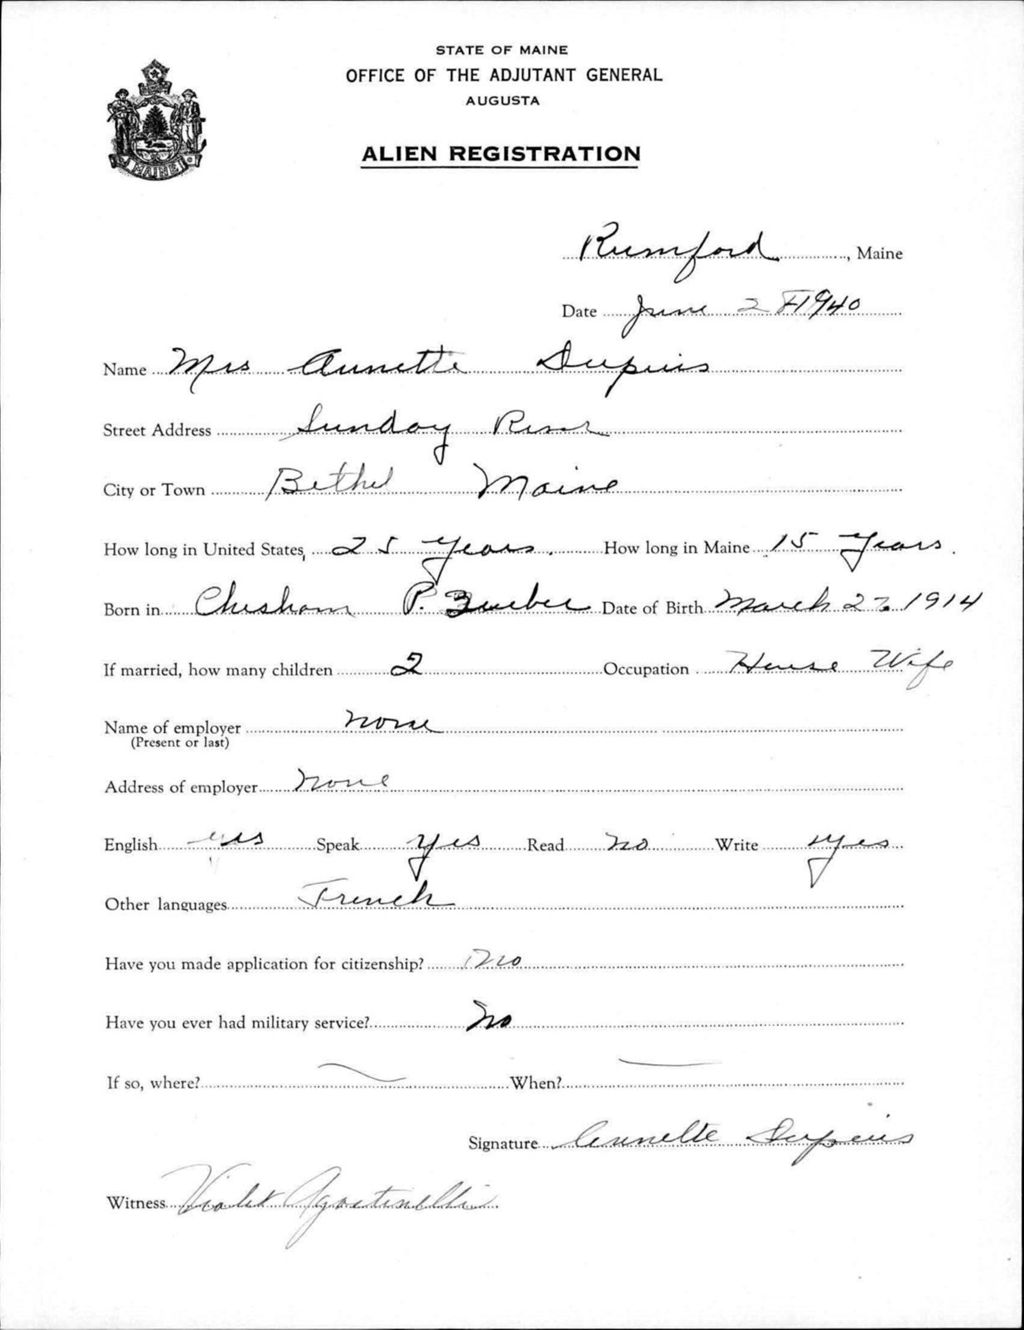 STATE OF MAINE
OFFICE OF THE ADJUTANT GENERAL
AUGUSTA
MAINE
ALIEN REGISTRATION
Rumford, Maine
Date June 28 1940
Name Mrs Annette Dupuis
Street Address Sunday River
City or Town Bethel Maine
How long in United States, 25 Years. How long in Maine 15 Years.
Born in Chesham P. Quebec Date of Birth March 1914
If married, how many children 2 Occupation House Wife
Name of employer none
(Present or last)
Address of employer none
English yes Speak yes Read no Write yes
Other languages French
Have you made application for citizenship? no
Have you ever had military service? no
If so, where? When?
Signature Annette Dupuis
Witness Violet Agostinelli